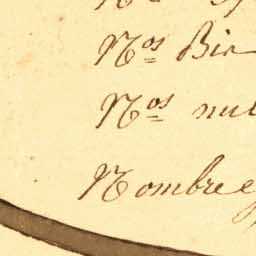 N.os Bie
N.os nul
Nombre e